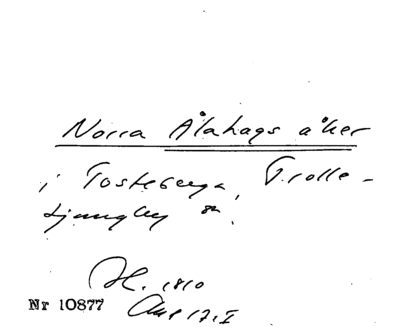 Norra Ålahags åker
i Tosteberga, Trolle-
Ljungby sn.
H. 1810
Nr 10877